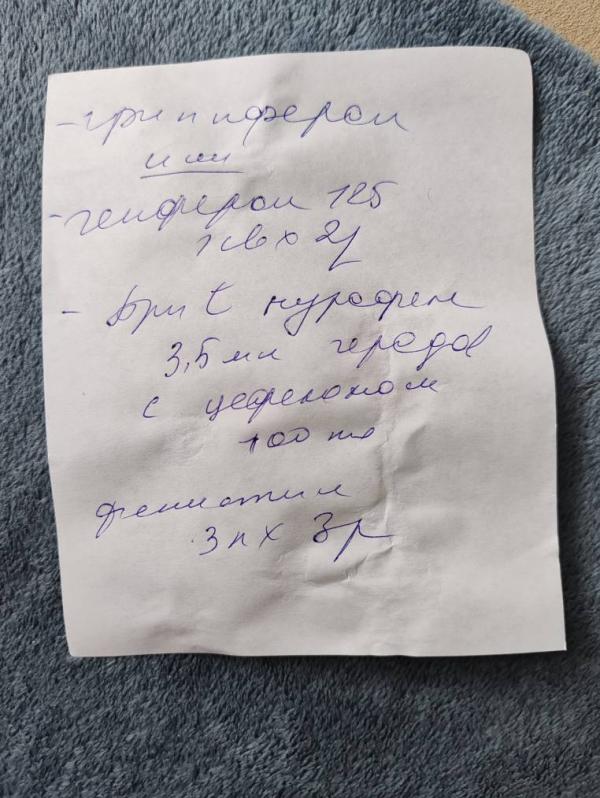 - гриппферон
или
- генферон 125
1 св х 2р
- при t нурофен
3,5 мл чередов
с цефеконом
100 мг
фенистил
3 к х 3р